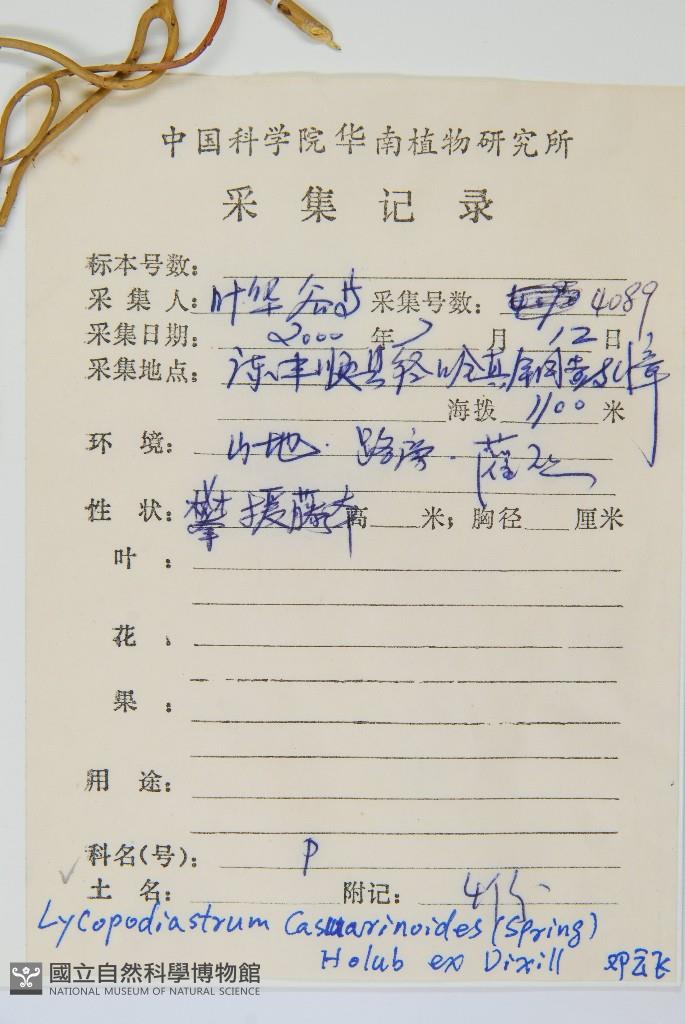 中国科学院华南植物研究所
采集记录
标本号数:
采集人:叶华谷 采集号数: 4089
采集日期: 2000 年 7 月 12 日
采集地点: 丰顺县
海拨 1100 米
环境: 山地·路旁·灌丛
性状: 攀援藤本 高 米; 胸径 厘米
叶:
花:
果:
用途:
科名(号): P
土名: 附记: 4份
Lycopodiastrum Casuarinoides (Spring)
Holub ex Dixill 邓云飞
國立自然科學博物館
NATIONAL MUSEUM OF NATURAL SCIENCE